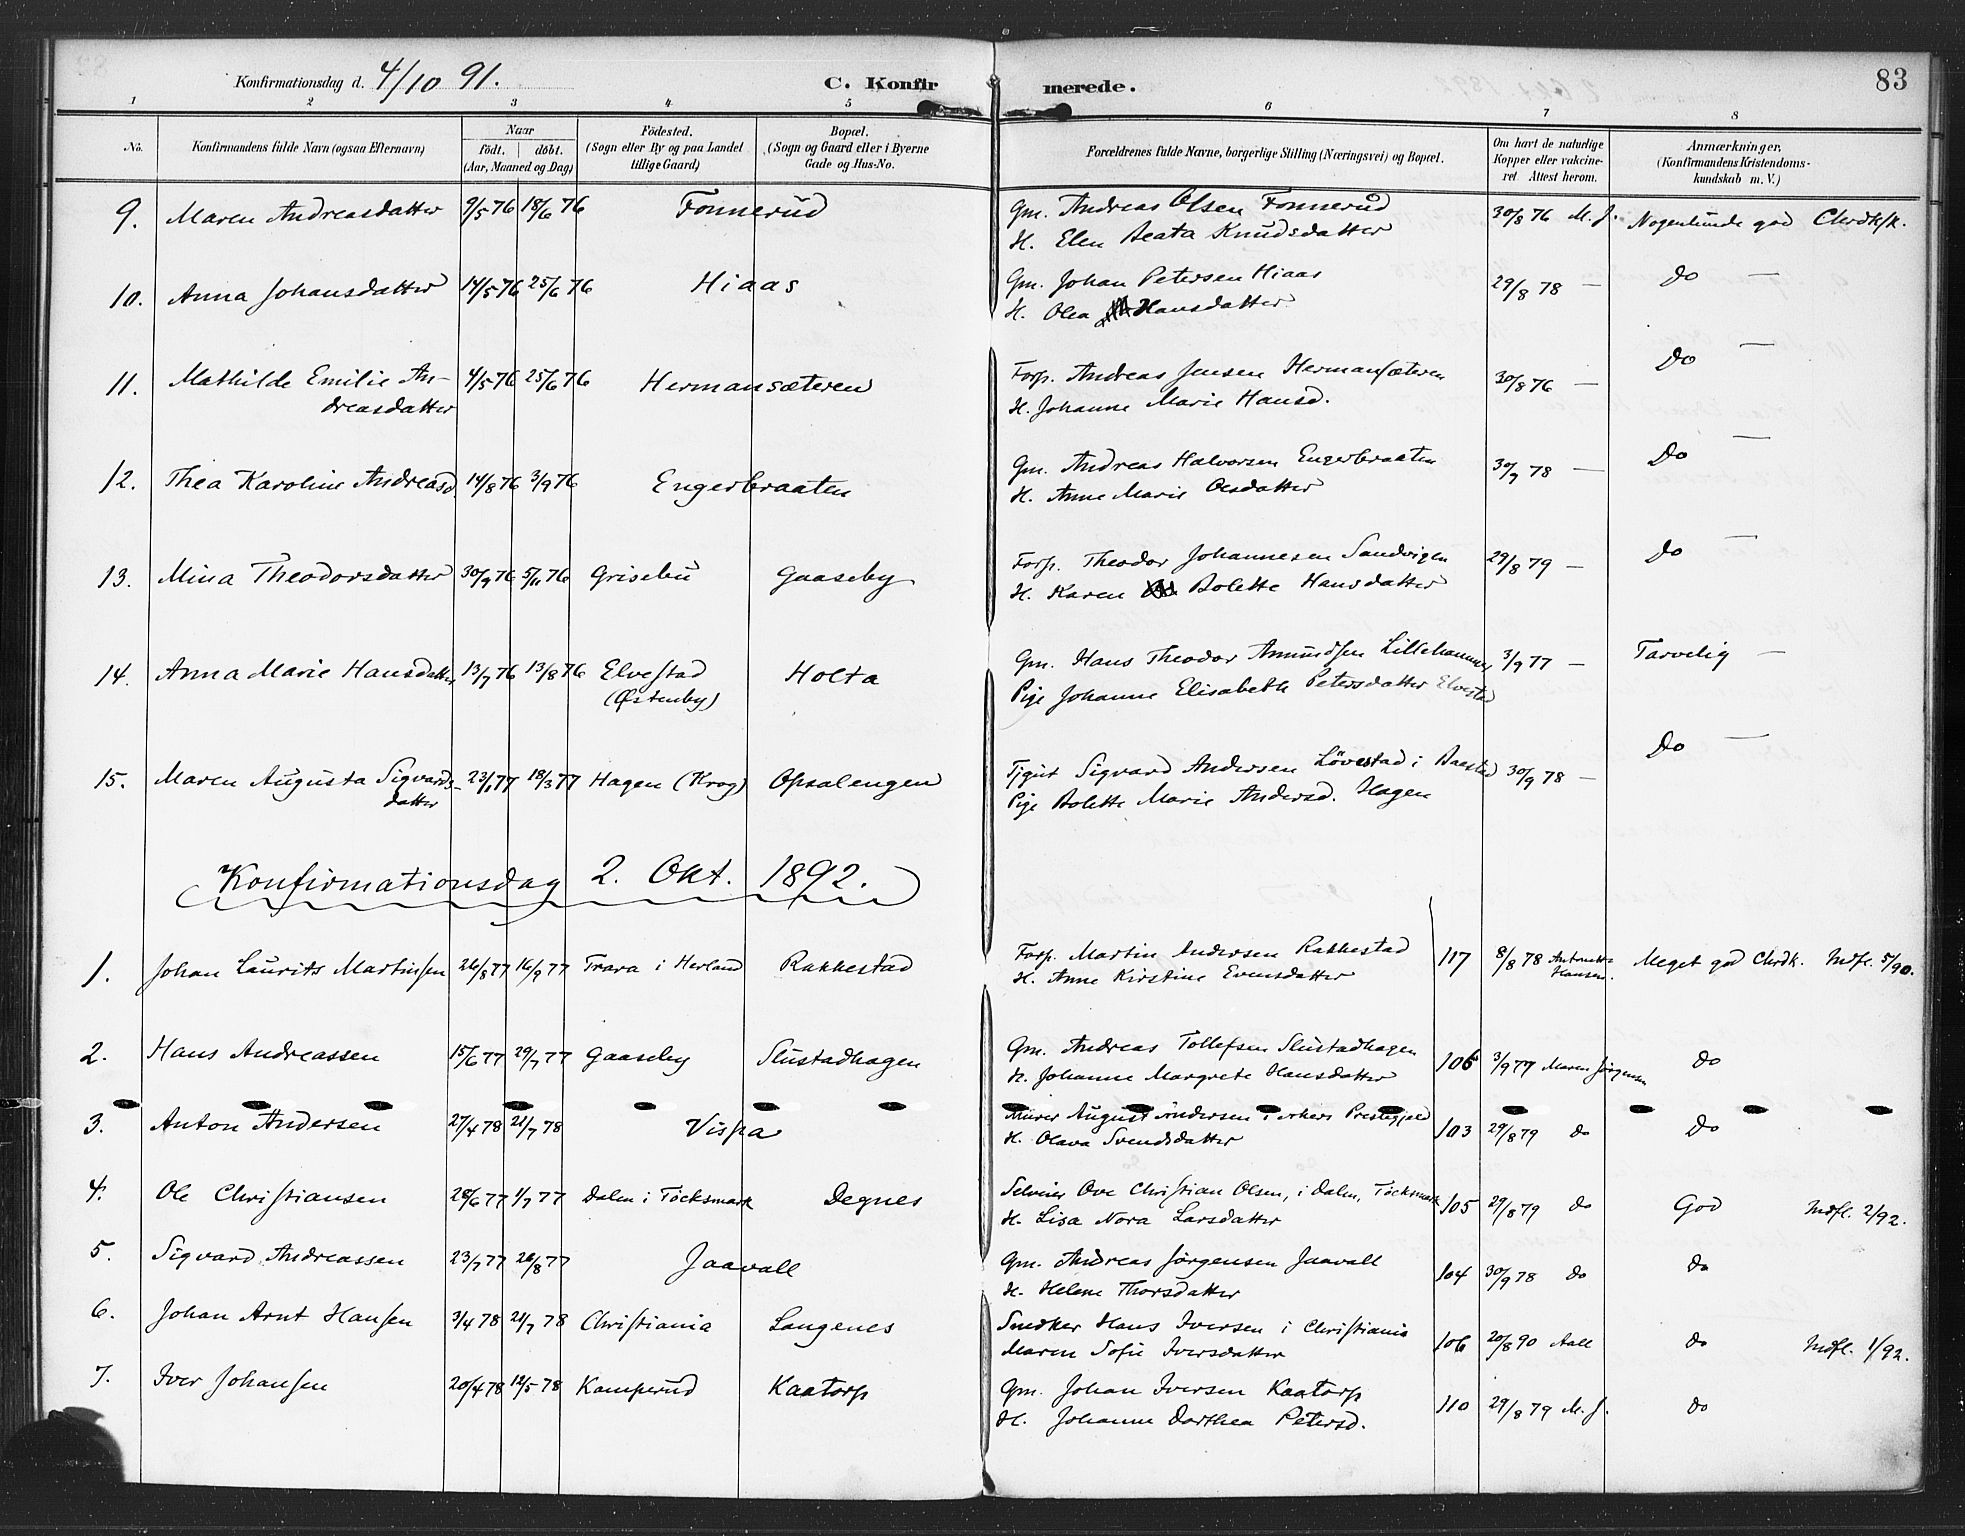 Konfirmationsdag d. 4/10 91. C. Konfirmerede. 83
1 2 3 4 5 6 7 8
No. Konfirmandens fulde Navn (ogsaa Efternavn) Naar født. døbt. (Aar, Maaned og Dag) Födested. (Sogn eller By og paa Landet tillige Gaard) Bopæl. (Sogn og Gaard eller i Byerne Gade og Hus-No. Forældrenes fulde Navne, borgerlige Stilling (Næringsvei) og Bopæl. Om havt de naturlige Kopper eller vakcineret Attest herom. Anmærkninger. (Konfirmandens Kristendomskundskab m. V.)
9. Maren Andreasdatter 9/5 76 18/6 76 Fonnerud Gm. Andreas Olsen Fonnerud 30/8 76 M. J. Nogenlunde god Chrdk/k.
H. Elen Beata Knudsdatter
10. Anna Johansdatter 14/5 76 25/6 76 Hiaas Gm. Johan Petersen Hiaas 29/8 78 — Do —
H. Olea Hansdatter
11. Mathilde Emilie An- 4/5 76 25/6 76 Hermansæteren Forp. Andreas Jensen Hermansæteren 30/8 76 — Do —
dreasdatter H. Johanne Marie Hansd.
12. Thea Karoline Andreasd 14/8 76 3/9 76 Engerbraaten Gm. Andreas Halvorsen Engerbraaten 30/9 78 — Do —
H. Anne Marie Olsdatter
13. Mina Theodorsdatter 30/9 76 5/11 76 Grisebu Gaaseby Forp. Theodor Johannesen Sandvigen 29/8 79 — Do —
H. Karen Bolette Hansdatter
14. Anna Marie Hansdatter 13/7 76 13/8 76 Elvestad Holta Gm. Hans Theodor Amundsen Lillehammer 3/9 77 — Tarvelig —
(Østenby) Pige Johanne Elisabeth Petersdatter Elvestad
15. Maren Augusta Sigvards- 23/1 77 18/3 77 Hagen (Krog) Opsalengen Tjgut Sigvard Andersen Lövestad i Baastad 30/9 78 — Do —
datter Pige Bolette Marie Andersd. Hagen
Konfirmationsdag 2. Okt. 1892.
1. Johan Laurits Martinsen 26/8 77 16/9 77 Trara i Herland Rakkestad Forp. Martin Andersen Rakkestad 117 8/8 78 Antonette Hansen. Meget god Chrdk. Indfl. 5/90.
H. Anne Kirstine Evensdatter
2. Hans Andreassen 15/6 77 29/7 77 Gaaseby Slustadhagen Gm. Andreas Tollefsen Slustadhagen 106 3/9 77 Maren Jörgensen Do
H. Johanne Margrete Hansdatter
3. Anton Andersen 27/4 78 21/7 78 Vispa Murer August Andersen i Askers Prestegjeld 103 29/8 79 do Do
H. Olava Svendsdatter
4. Ole Christiansen 28/6 77 1/7 77 Dalen i Töcksmark Degnes Selveier Ove Christian Olsen, i Dalen, Töcksmark 105 29/8 79 do God Indfl. 2/92.
H. Lisa Nora Larsdatter
5. Sigvard Andreassen 23/7 77 26/8 77 Jaavall Gm. Andreas Jörgensen Jaavall 104 30/9 78 do do
H. Helene Thorsdatter
6. Johan Arnt Hansen 3/4 78 21/7 78 Christiania Langenes Snedker Hans Iversen i Christiania 106 20/8 90 Aall do Indfl. 1/92.
Maren Sofie Iversdatter
7. Iver Johansen 20/4 78 12/5 78 Kamperud Kaatorp Gm. Johan Iversen Kaatorp 110 29/8 79 M. J. do
H. Johanne Dorthea Petersd.